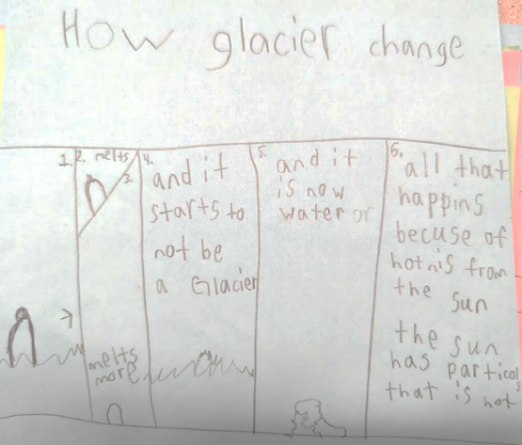 How glacier change
1.
2. melts
3.
melts
more
4.
and it
starts to
not be
a Glacier
5.
and it
is now
water or
6.
all that
happins
becuse of
hotnis from
the sun
the sun
has particals
that is hot